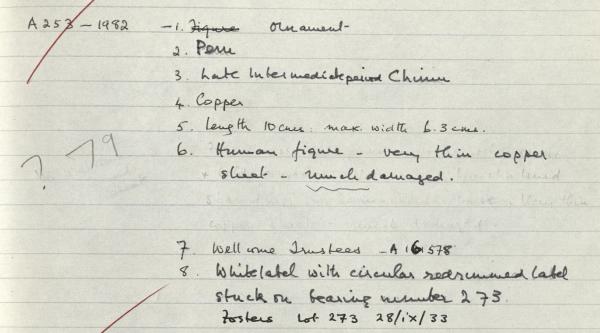 A253-1982 - 1. Figure ornament
2. Peru
3. Late Intermediate period Chimu
4. Copper
5. Length 10 cms. max. width 6.3 cms.
6. Human figure - very thin copper
sheet - much damaged.
? 79
7. Wellcome Trustees - A 161578
8. White label with circular redrimmed label
stuck on bearing number 273.
Fosters Lot 273 28/ix/33